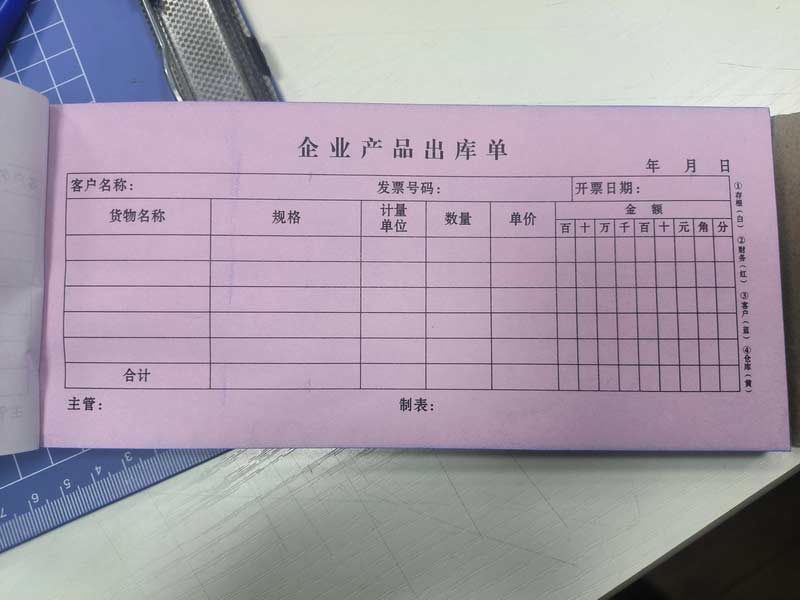 企业产品出库单
年 月 日
客户名称: 发票号码: 开票日期:
货物名称 规格 计量单位 数量 单价 金额
百 十 万 千 百 十 元 角 分
合计
主管: 制表:
①存根(白) ②财务(红) ③客户(蓝) ④仓库(黄)
3 4 5 6 7